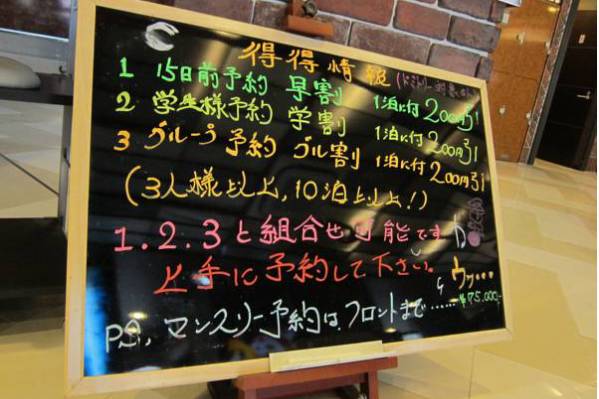 得得情報 (ドミトリー
1 15日前予約 早割 1泊に付200円引
2 学生様予約 学割 1泊に付200円引
3 グループ予約 グル割 1泊に付200円引
(3人様以上,10泊以上!)
1.2.3と組合せ可能です
上手に予約して下さい。
ウッ...
PS,マンスリー予約は、フロントまで......¥75,000,-